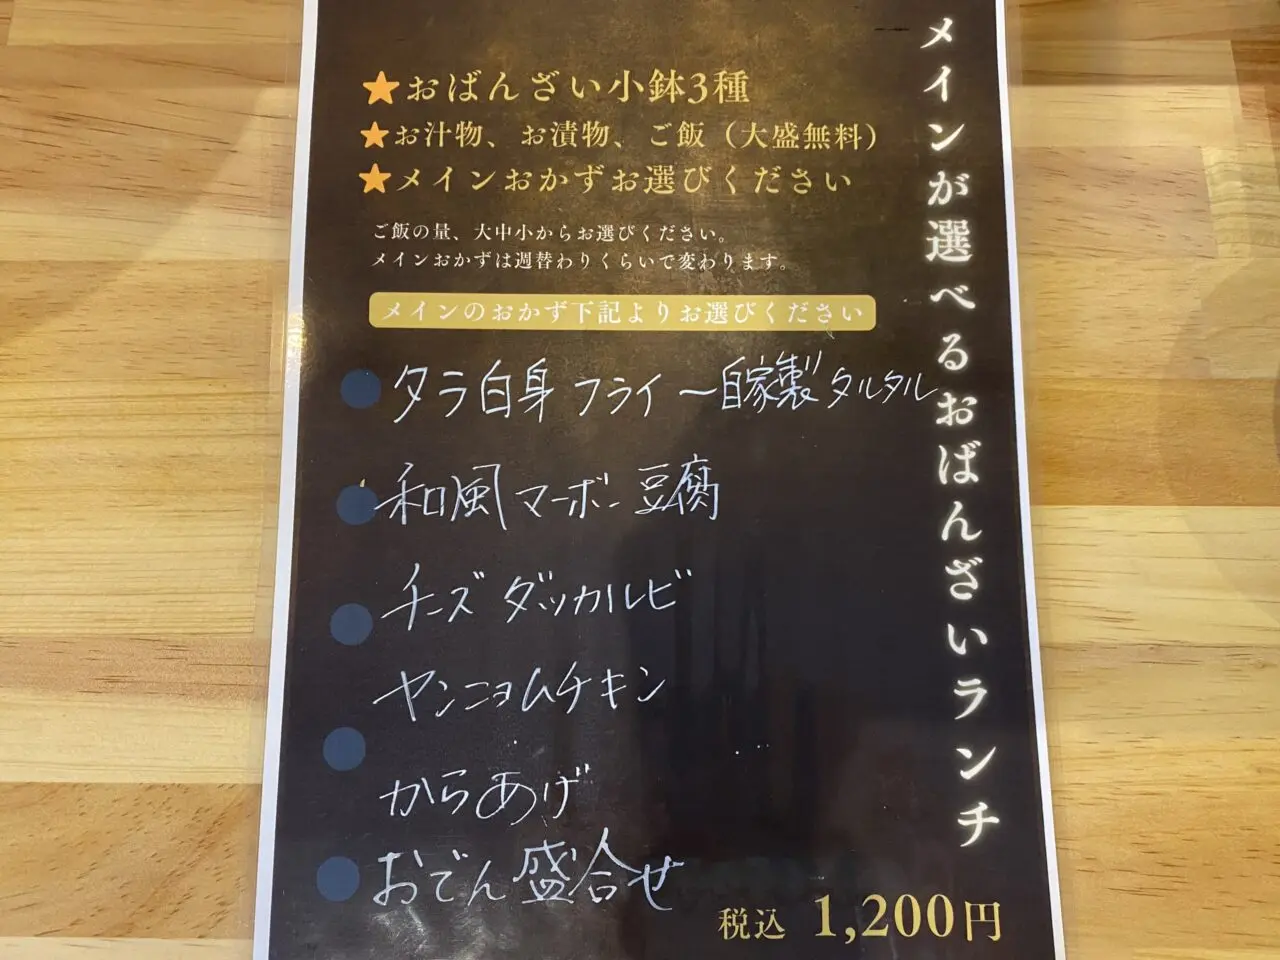 メインが選べるおばんざいランチ
★おばんざい小鉢3種
★お汁物、お漬物、ご飯（大盛無料）
★メインおかずお選びください
ご飯の量、大中小からお選びください。
メインおかずは週替わりくらいで変わります。
メインのおかず下記よりお選びください
タラ白身フライ～自家製タルタル
和風マーボー豆腐
チーズダッカルビ
ヤンニョムチキン
からあげ
おでん盛合せ
税込 1,200円